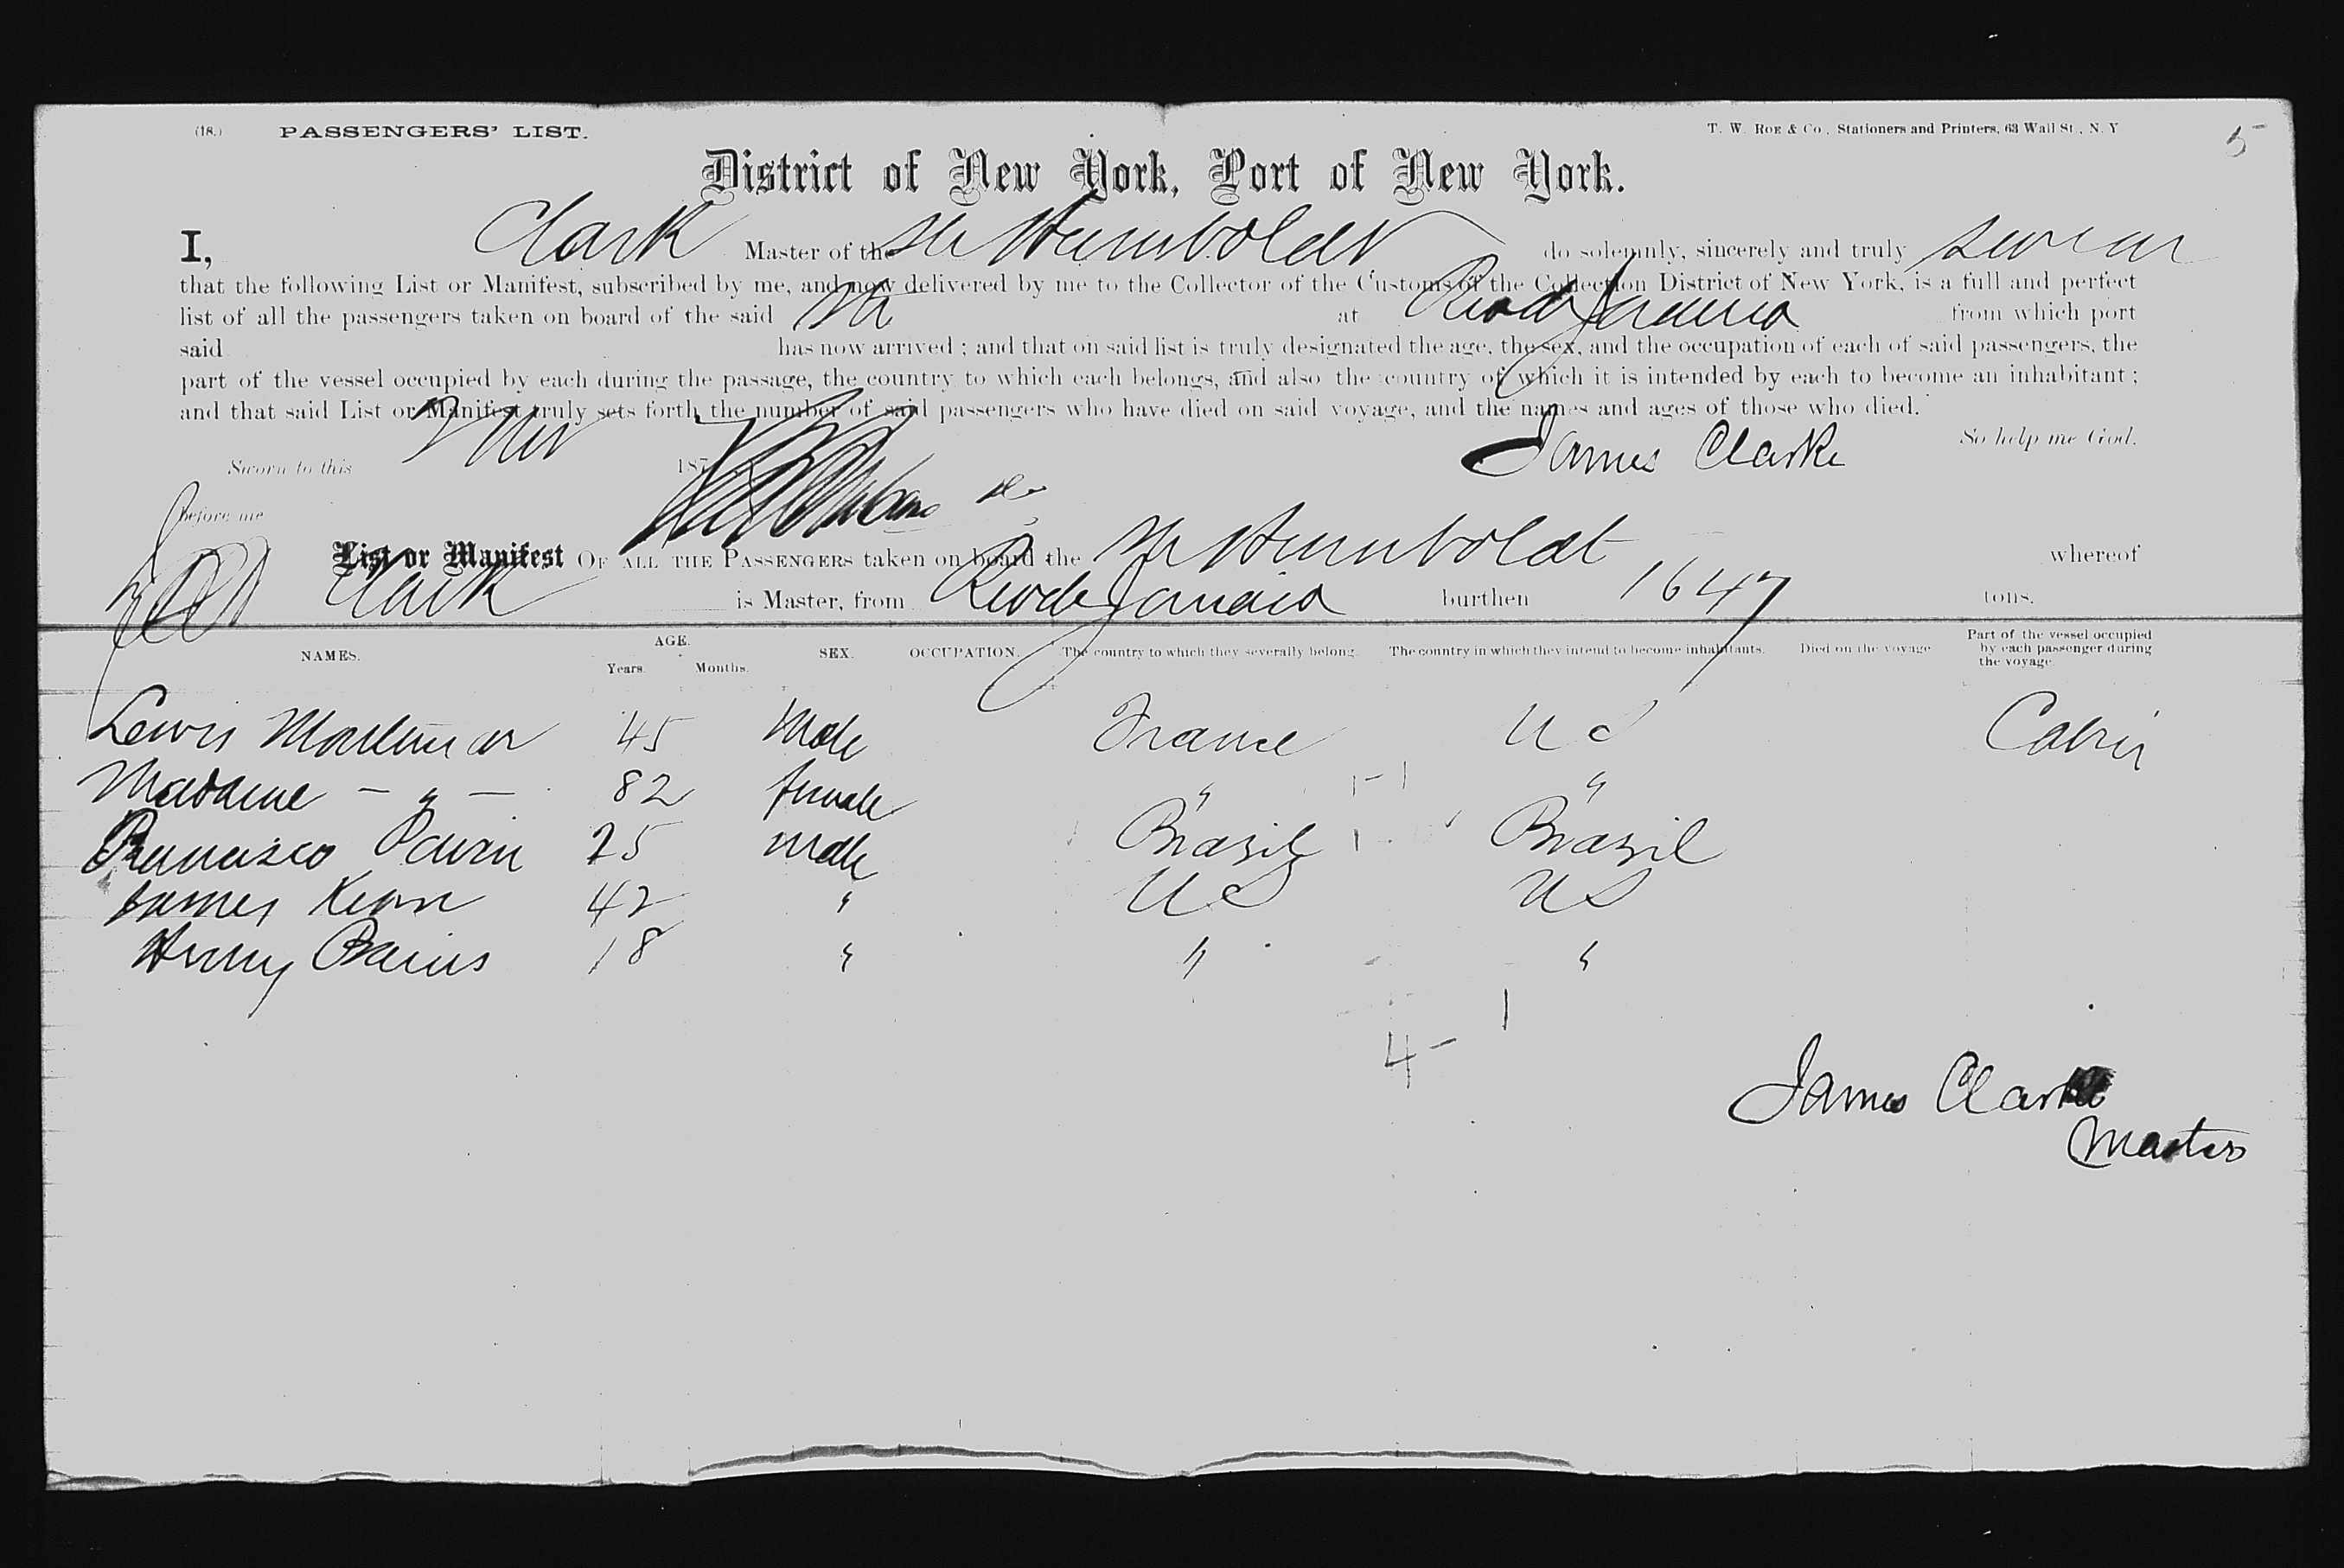 (18.) PASSENGERS' LIST. T. W. ROE & Co., Stationers and Printers, 63 Wall St., N. Y 5
District of New York, Port of New York.
I, Clark Master of the Str Humboldt do solemnly, sincerely and truly swear
that the following List or Manifest, subscribed by me, and now delivered by me to the Collector of the Customs of the Collection District of New York, is a full and perfect
list of all the passengers taken on board of the said Str at Rio de Janeiro from which port
said has now arrived; and that on said list is truly designated the age, the sex, and the occupation of each of said passengers, the
part of the vessel occupied by each during the passage, the country to which each belongs, and also the country of which it is intended by each to become an inhabitant;
and that said List or Manifest truly sets forth the number of said passengers who have died on said voyage, and the names and ages of those who died.
So help me God.
Sworn to this 187 James Clarke
before me
List or Manifest OF ALL THE PASSENGERS taken on board the Str Humboldt whereof
Clark is Master, from Rio de Janeiro burthen 1647 tons.
NAMES. AGE. Years. Months. SEX. OCCUPATION. The country to which they severally belong. The country in which they intend to become inhabitants. Died on the voyage Part of the vessel occupied by each passenger during the voyage.
Lewis 45 Male France US Cabin
Madame - " - 82 female " 1-1 "
25 male Brasil 1 Brazil
James 42 " US US
Henry 18 " " "
4 - 1
James Clarke
Master